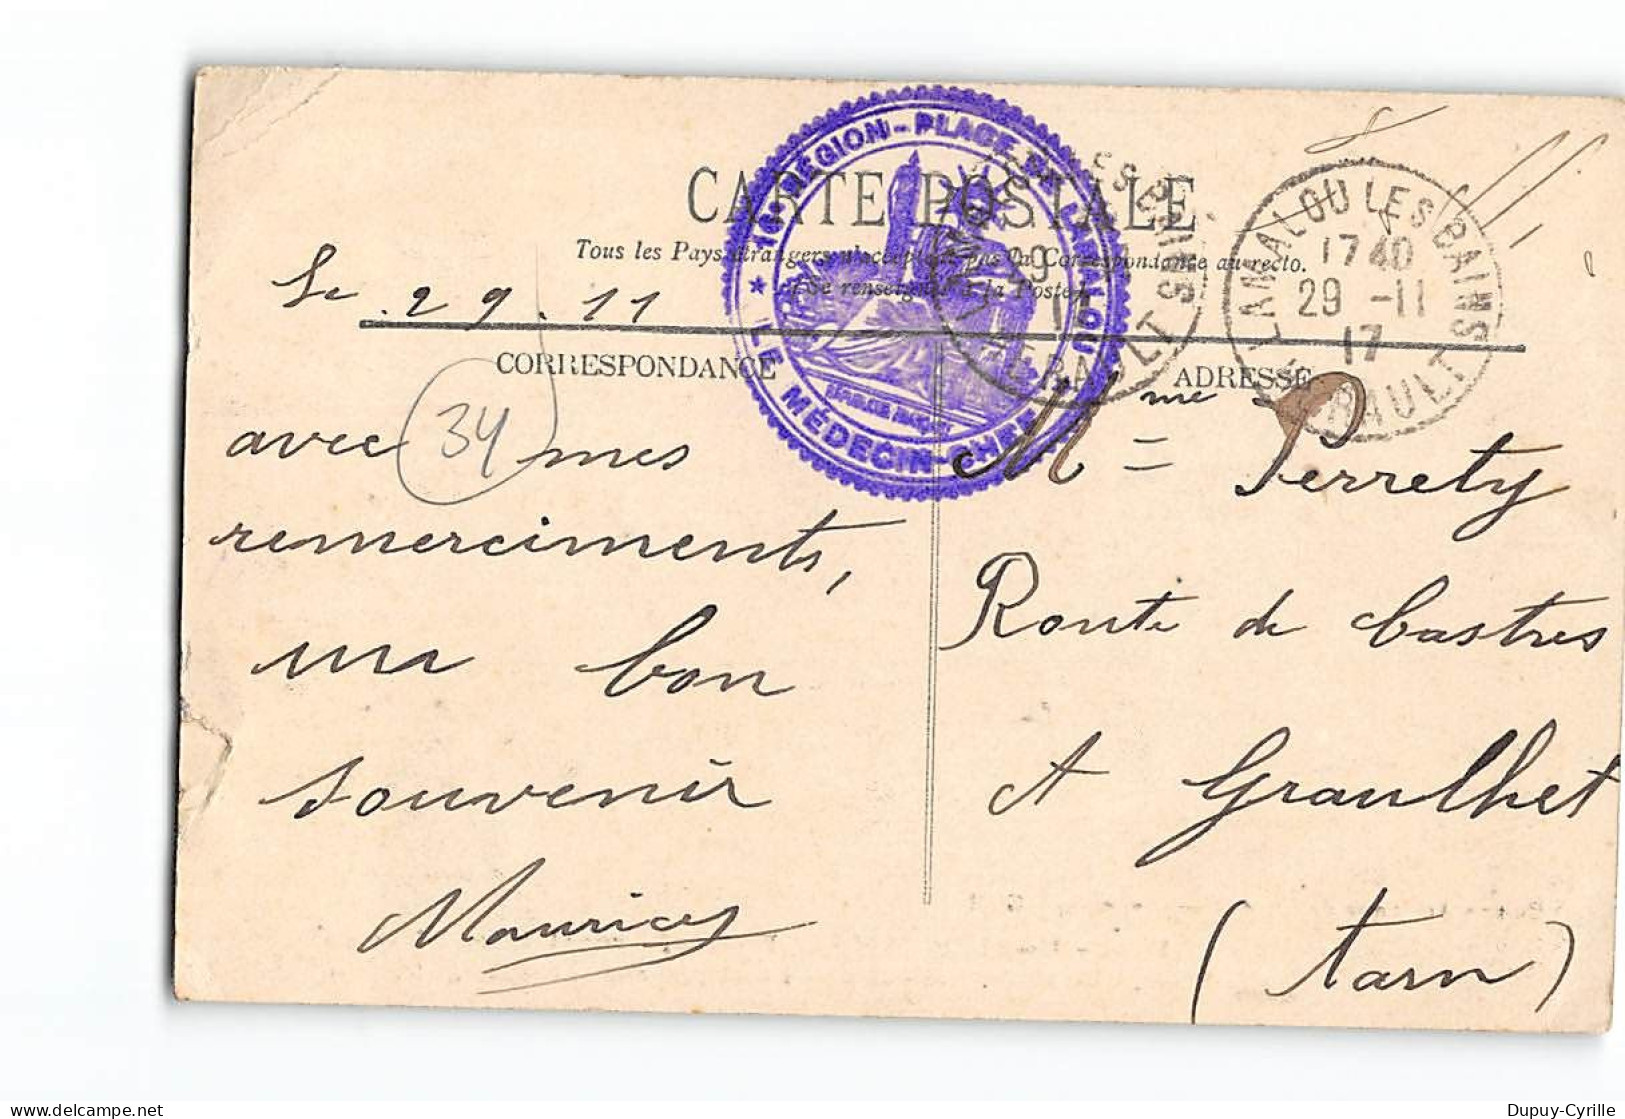 CARTE POSTALE
Tous les Pays étrangers n'acceptent pas la Correspondance au recto.
Se renseigner à la Poste
16e RÉGION - PLACE DE LAMALOU
★ LE MÉDECIN-CHEF
LAMALOU LES BAINS
29
HERAULT
LAMALOU LES BAINS
17 40
29 -11
17
HERAULT
Le 29.11
CORRESPONDANCE
34
avec mes
remerciments,
un bon
souvenir
Maurice
ADRESSE
Mme Perrety
Route de Castres
A Graulhet
(Tarn)
Dupuy-Cyrille